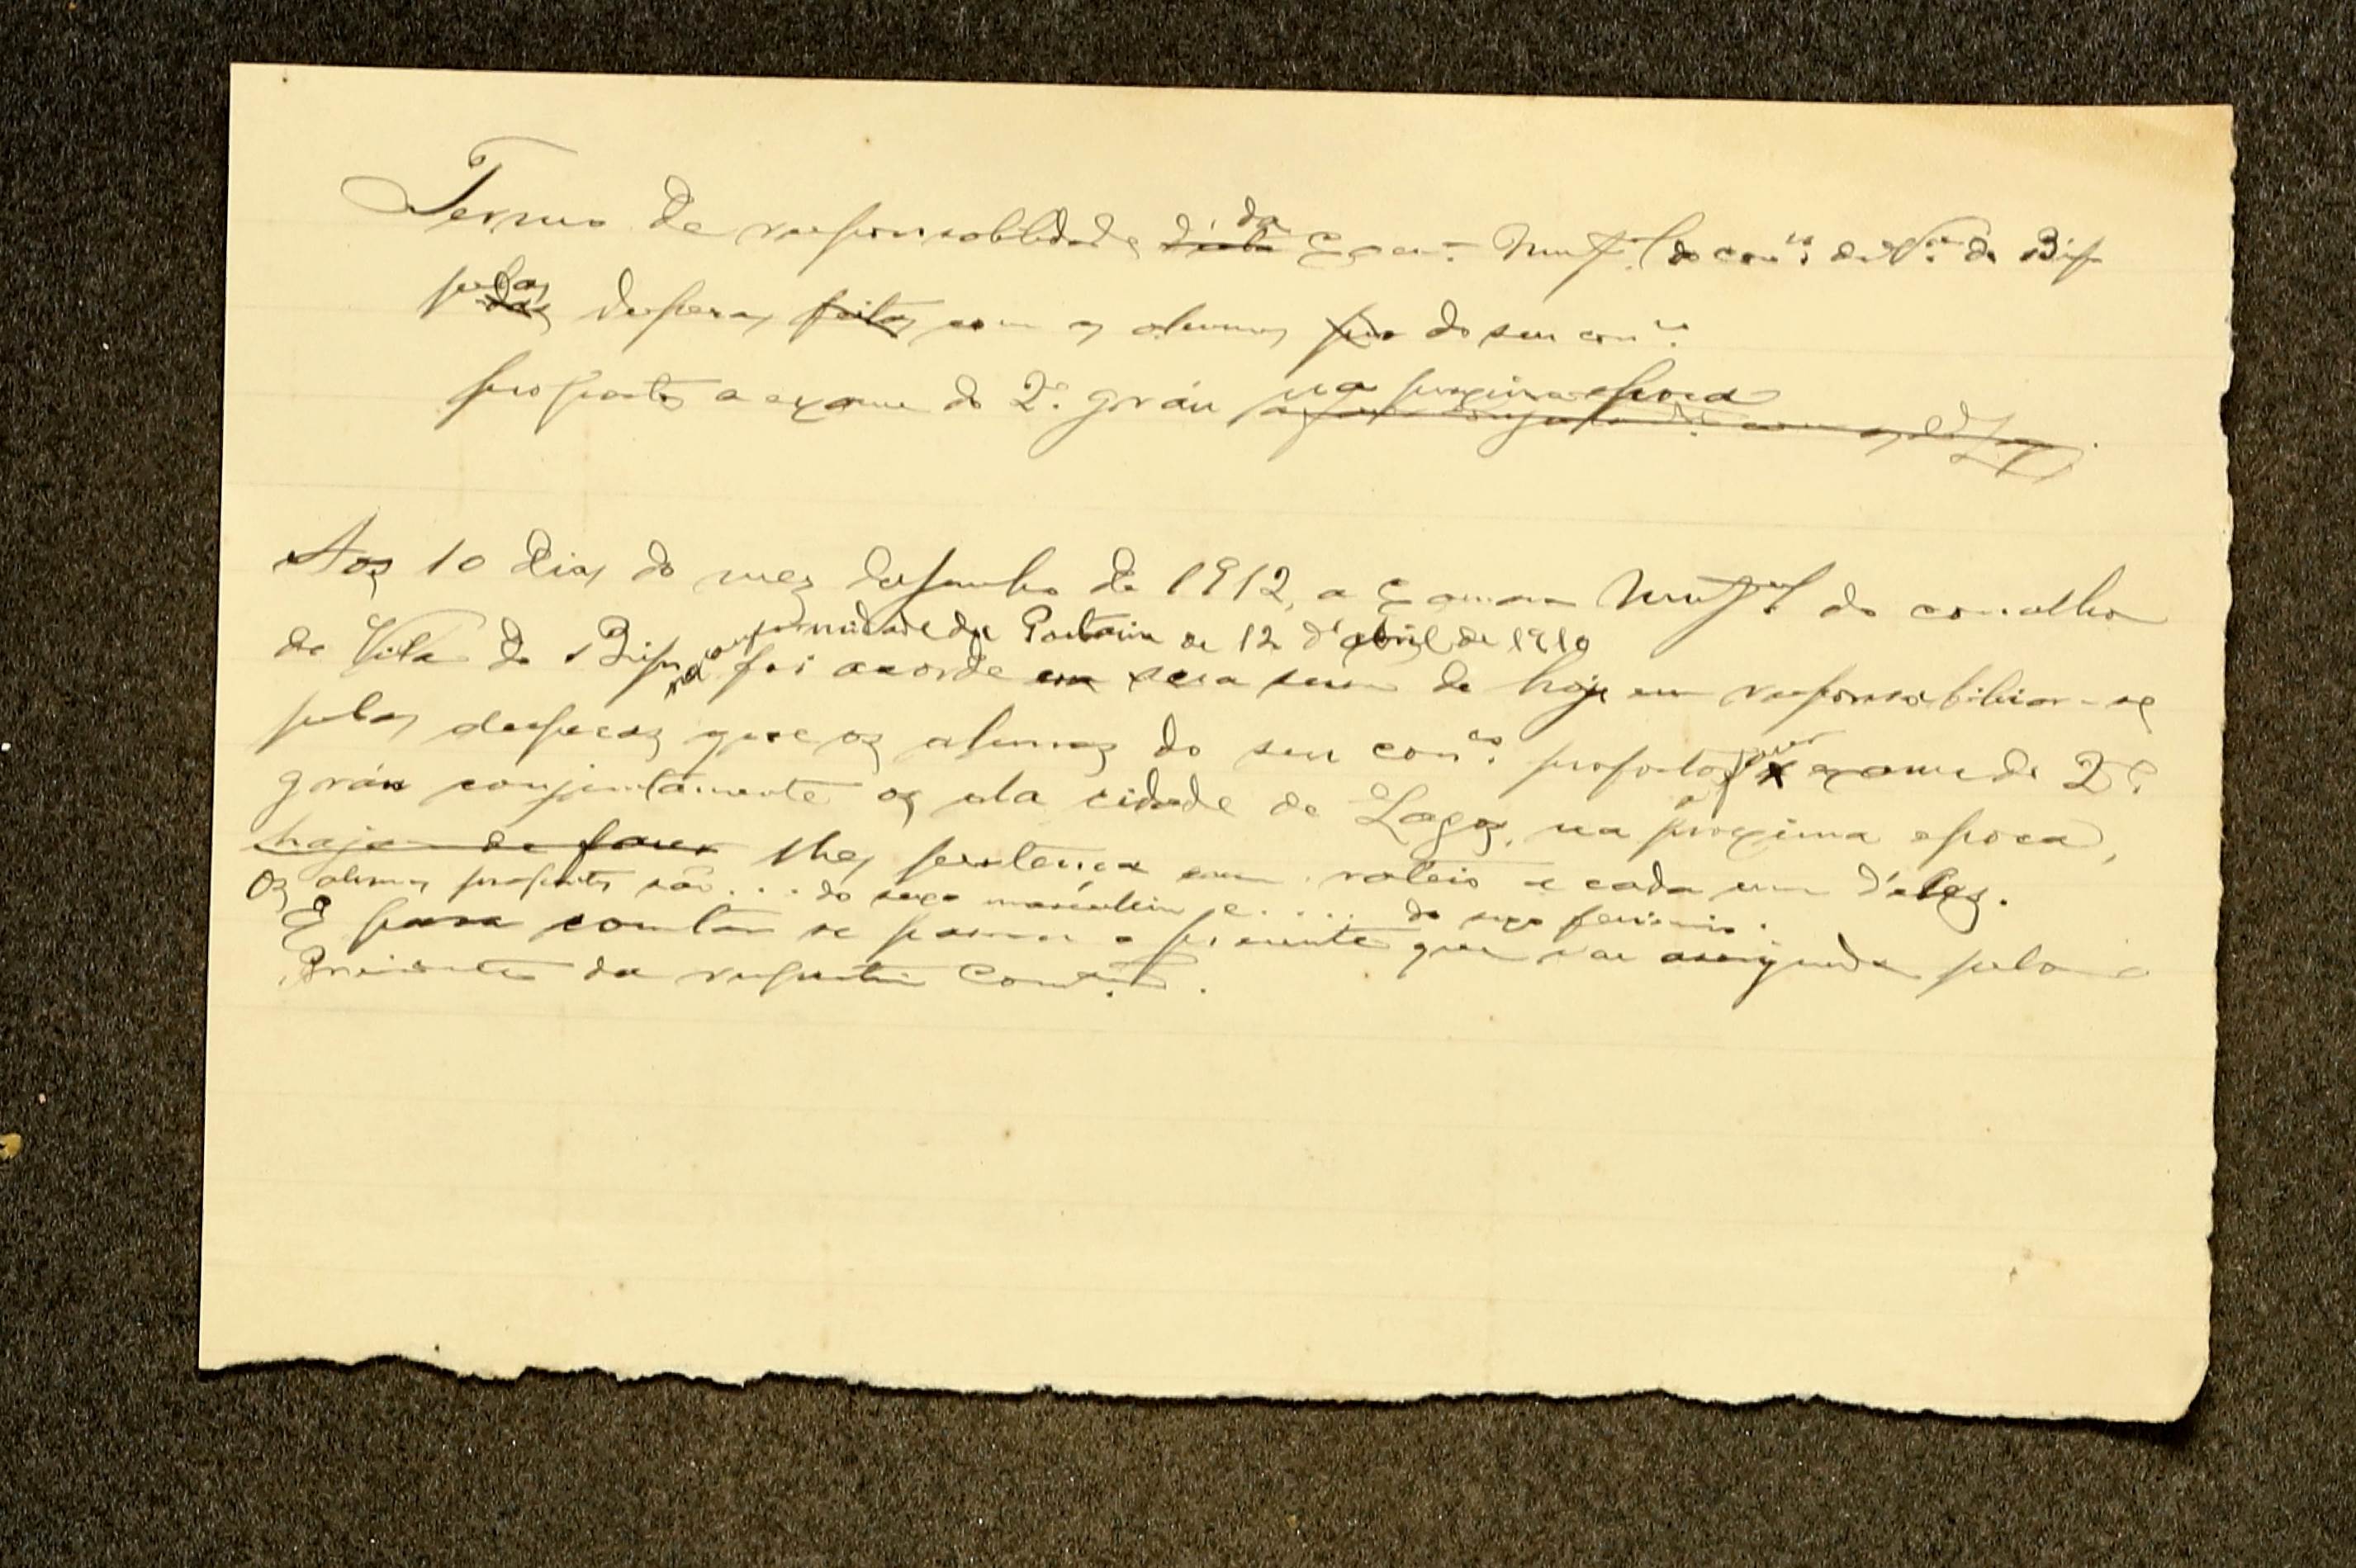 Termo de responsabilidade da Camª Munpl do conco de Vª do Bispo
pelas despezas feitas com os alumnos do seu conco
propostos a exame do 2º gráu na proxima epoca
Aos 10 dias do mez de junho de 1912, a Camara Munpl do concelho
na conformidade da Portaria de 12 d'abril de 1910
de Vila do Bispo foi acorde em sua sessão de hoje em responsabiliar-se
pelas despezas que os alumnos do seu conco propostos para exame de 2º
gráu conjuntamente os da cidade de Lagos, na proxima epoca,
hajam de fazer lhes pertença em rateio a cada um d'eles.
Os alumnos propostos são ... do sexo masculino e .... do sexo feminino.
E para constar se passou o presente que vae assignado pelo
Presidente da respectiva